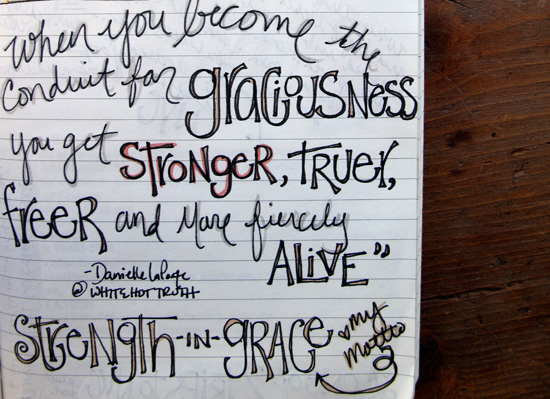 when you become the
conduit for graciousness
you get STRONGER, TRUER,
FREER and More fiercely
ALIVE"
-Danielle LaPorte
@WHITEHOTTRUTH
STRENGTH-IN-GRACE my
motto